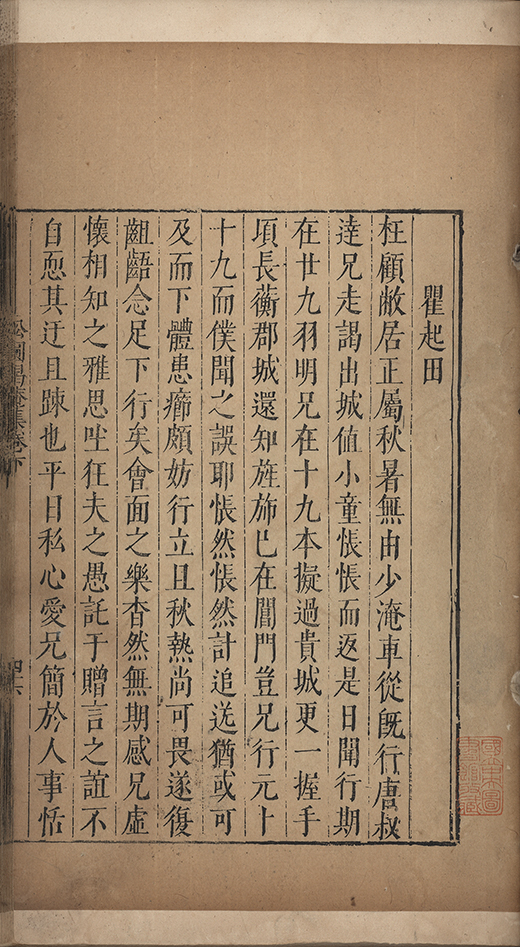 瞿起田
枉顧敝居正屬秋暑無由少淹車從旣行唐叔
達兄走謁出城値小童悵悵而返是日聞行期
在廿九羽明兄在十九本擬過貴城更一握手
項長蘅郡城還知旌斾已在閶門豈兄行元十
十九而僕聞之誤耶悵然悵然計追送猶或可
及而下體患癤頗妨行立且秋熱尚可畏遂復
齟齬念足下行矣會面之樂杳然無期感兄虛
懷相知之雅思㘴狂夫之愚託于贈言之誼不
自恧其迂且踈也平日私心愛兄簡於人事恬
松圓偈庵集卷下
四六